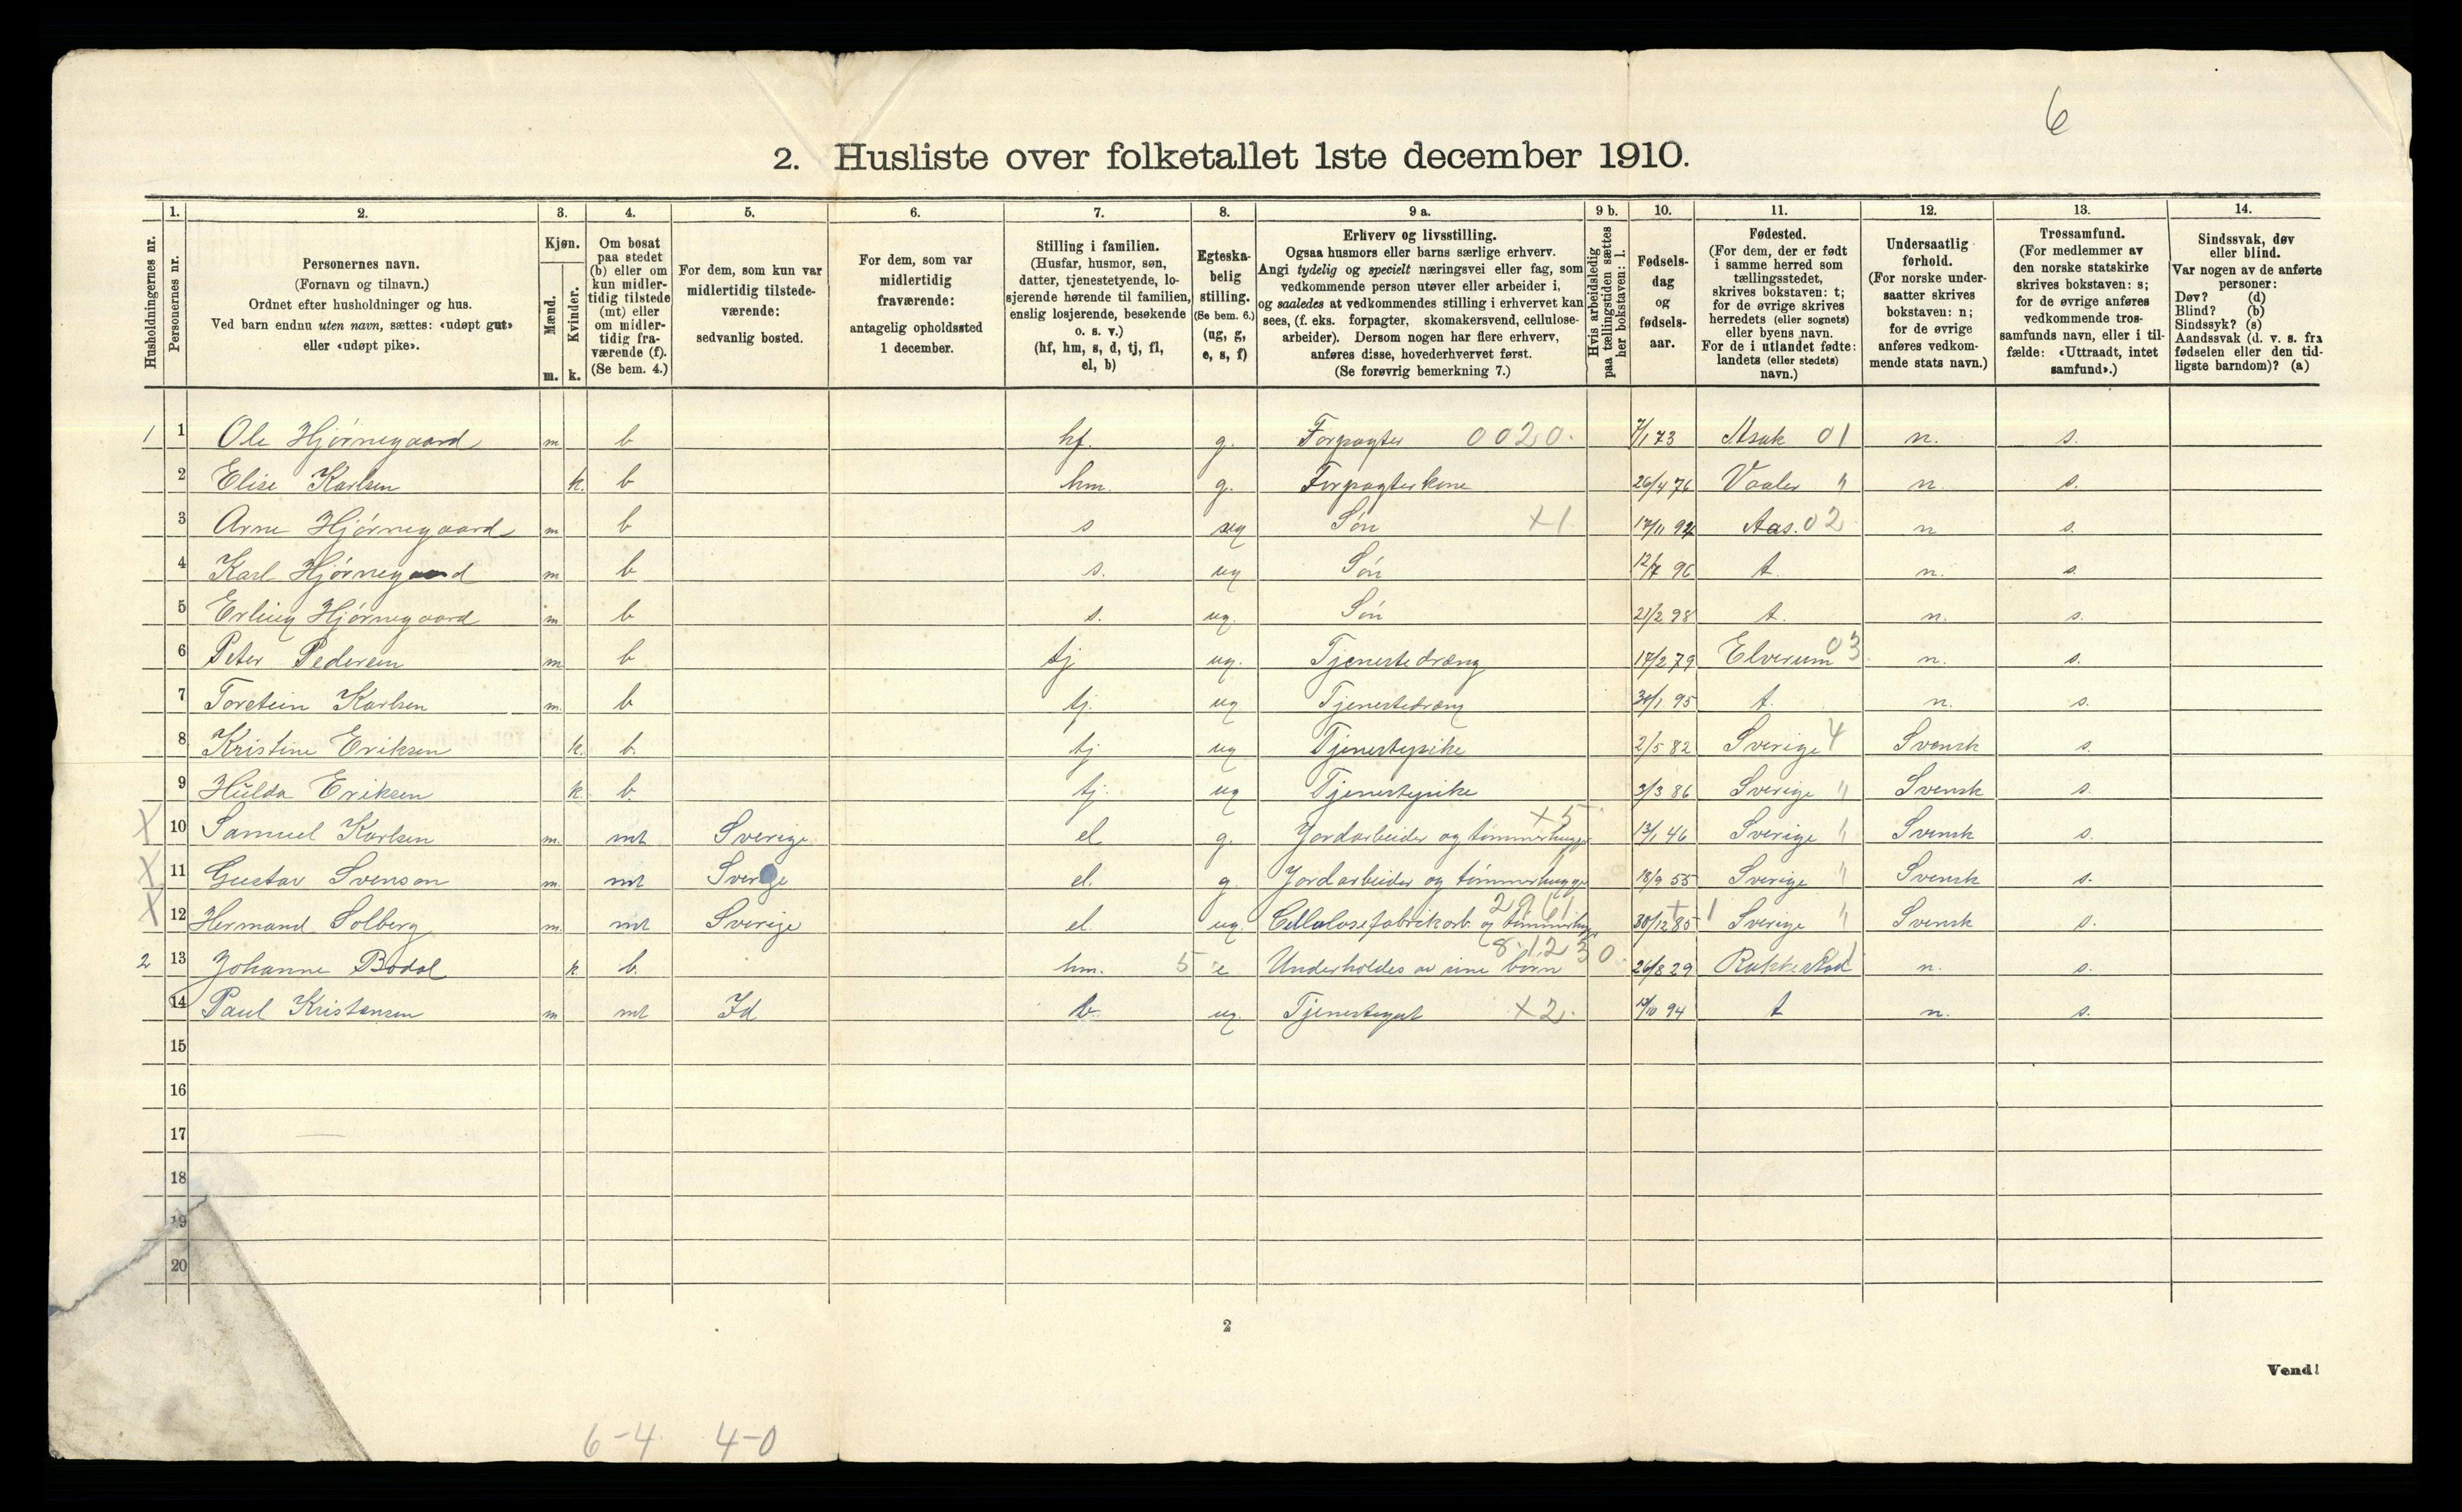 6
2. Husliste over folketallet 1ste december 1910.
Husholdningernes nr.
1.
Personernes nr.
2.
Personernes navn.
(Fornavn og tilnavn.)
Ordnet efter husholdninger og hus.
Ved barn endnu uten navn, sættes: «udøpt gut»
eller «udøpt pike».
3.
Kjøn.
Mænd.
Kvinder.
m.
k.
4.
Om bosat
paa stedet
(b) eller om
kun midler-
tidig tilstede
(mt) eller
om midler-
tidig fra-
værende (f).
(Se bem. 4.)
5.
For dem, som kun var
midlertidig tilstede-
værende:
sedvanlig bosted.
6.
For dem, som var
midlertidig
fraværende:
antagelig opholdssted
1 december.
7.
Stilling i familien.
(Husfar, husmor, søn,
datter, tjenestetyende, lo-
sjerende hørende til familien,
enslig losjerende, besøkende
o. s. v.)
(hf, hm, s, d, tj, fl,
el, b)
8.
Egteska-
belig
stilling.
(Se bem. 6.)
(ug, g,
e, s, f)
9 a.
Erhverv og livsstilling.
Ogsaa husmors eller barns særlige erhverv.
Angi tydelig og specielt næringsvei eller fag, som
vedkommende person utøver eller arbeider i,
og saaledes at vedkommendes stilling i erhvervet kan
sees, (f. eks. forpagter, skomakersvend, cellulose-
arbeider). Dersom nogen har flere erhverv,
anføres disse, hovederhvervet først.
(Se forøvrig bemerkning 7.)
9 b.
Hvis arbeidsledig
paa tællingstiden sættes
her bokstaven: l.
10.
Fødsels-
dag
og
fødsels-
aar.
11.
Fødested.
(For dem, der er født
i samme herred som
tællingsstedet,
skrives bokstaven: t;
for de øvrige skrives
herredets (eller sognets)
eller byens navn.
For de i utlandet fødte:
landets (eller stedets)
navn.)
12.
Undersaatlig
forhold.
(For norske under-
saatter skrives
bokstaven: n;
for de øvrige
anføres vedkom-
mende stats navn.)
13.
Trossamfund.
(For medlemmer av
den norske statskirke
skrives bokstaven: s;
for de øvrige anføres
vedkommende tros-
samfunds navn, eller i til-
fælde: «Uttraadt, intet
samfund».)
14.
Sindssvak, døv
eller blind.
Var nogen av de anførte
personer:
Døv? (d)
Blind? (b)
Sindssyk? (s)
Aandssvak (d. v. s. fra
fødselen eller den tid-
ligste barndom)? (a)
1 1 Ole Hjørnegaard m b hf. g. Forpagter 0020. 7/1 73 Asak 01 n. s.
2 Elise Karlsen k. b hm. g. Forpagterkone 26/4 76 Vaaler " n. s.
3 Arne Hjørnegaard m b s ug Søn X1 17/11 92 Aas. 02 n s.
4 Karl Hjørnegaard m b s. ug Søn 12/7 96 t. n. s.
5 Erling Hjørnegaard m b s. ug. Søn 21/2 98 t. n. s.
6 Peter Pedersen m b tj ug. Tjenestedræng 17/2 79 Elverum 03 n. s.
7 Torstein Karlsen m. b tj. ug Tjenestedræng 30/1 95 t. n. s.
8 Kristine Eriksen k. b. tj ug Tjenestepike 2/5 82 Sverige 4 Svensk s.
9 Hulda Eriksen k. b. tj. ug Tjenestepike 3/3 86 Sverige " Svensk s.
X 10 Samuel Karlsen m. mt Sverige el. g. Jordarbeider og tømmerhugger X5 13/1 46 Sverige " Svensk s.
X 11 Gustav Svenson m. mt Sverige el. g. Jordarbeider og tømmerhugger 18/9 55 Sverige " Svensk s.
X 12 Hermand Solberg m. mt Sverige el. ug. Cellulosefabrikarb. og tømmerhug 30/12 85 Sverige " Svensk s.
2 13 Johanne Bodal k. b. hm. 5 e Underholdes av sine børn 26/8 29 Rakkestad n. s.
14 Paul Kristensen m mt Id b. ug. Tjenestegut X2. 94 t n. s.
15
16
17
18
19
20
2
Vend!
6-4 4-0